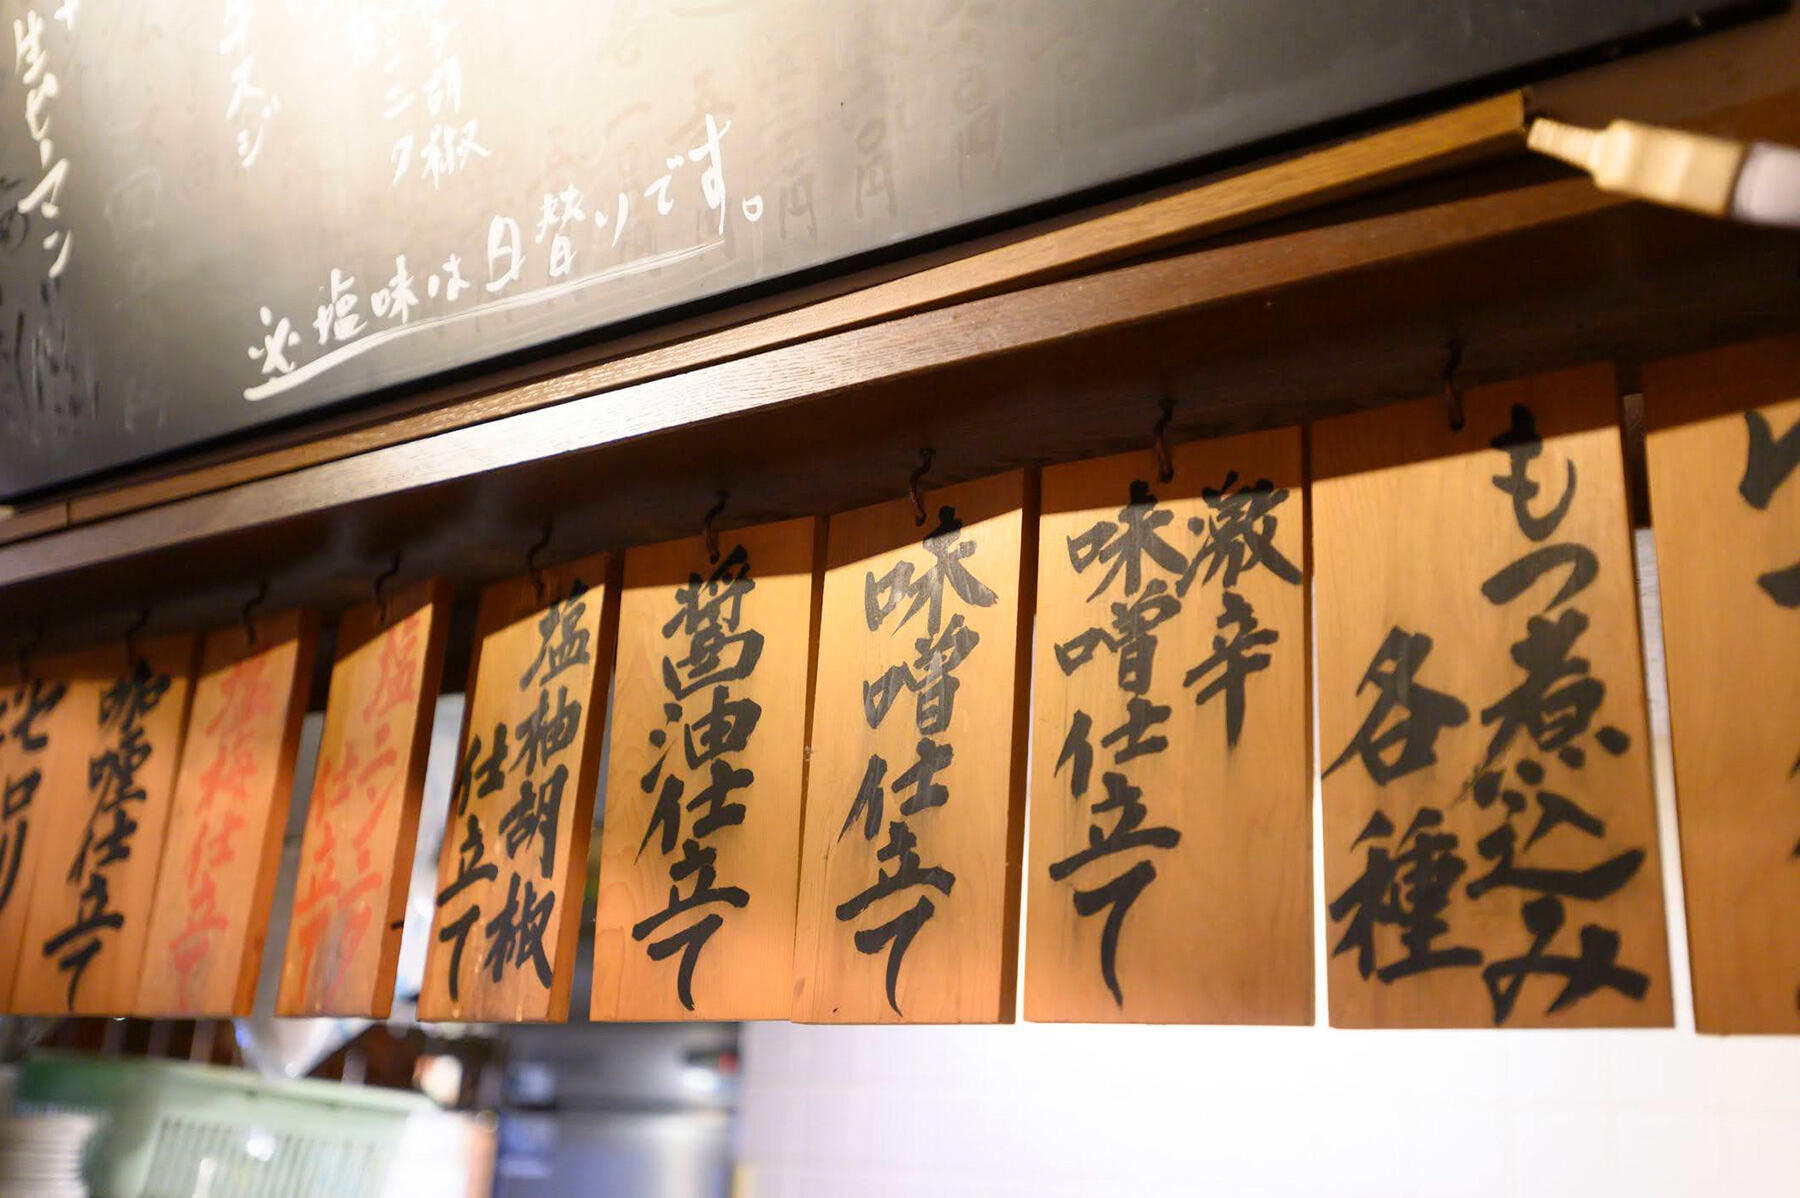 生ピーマン
牛スジ
ニンニク
胡椒
※塩味は日替りです。
もつ煮込み
各種
激辛
味噌仕立て
味噌仕立て
醤油仕立て
塩柚胡椒
仕立て
塩ニンニク
仕立て
塩
仕立て
味噌仕立て